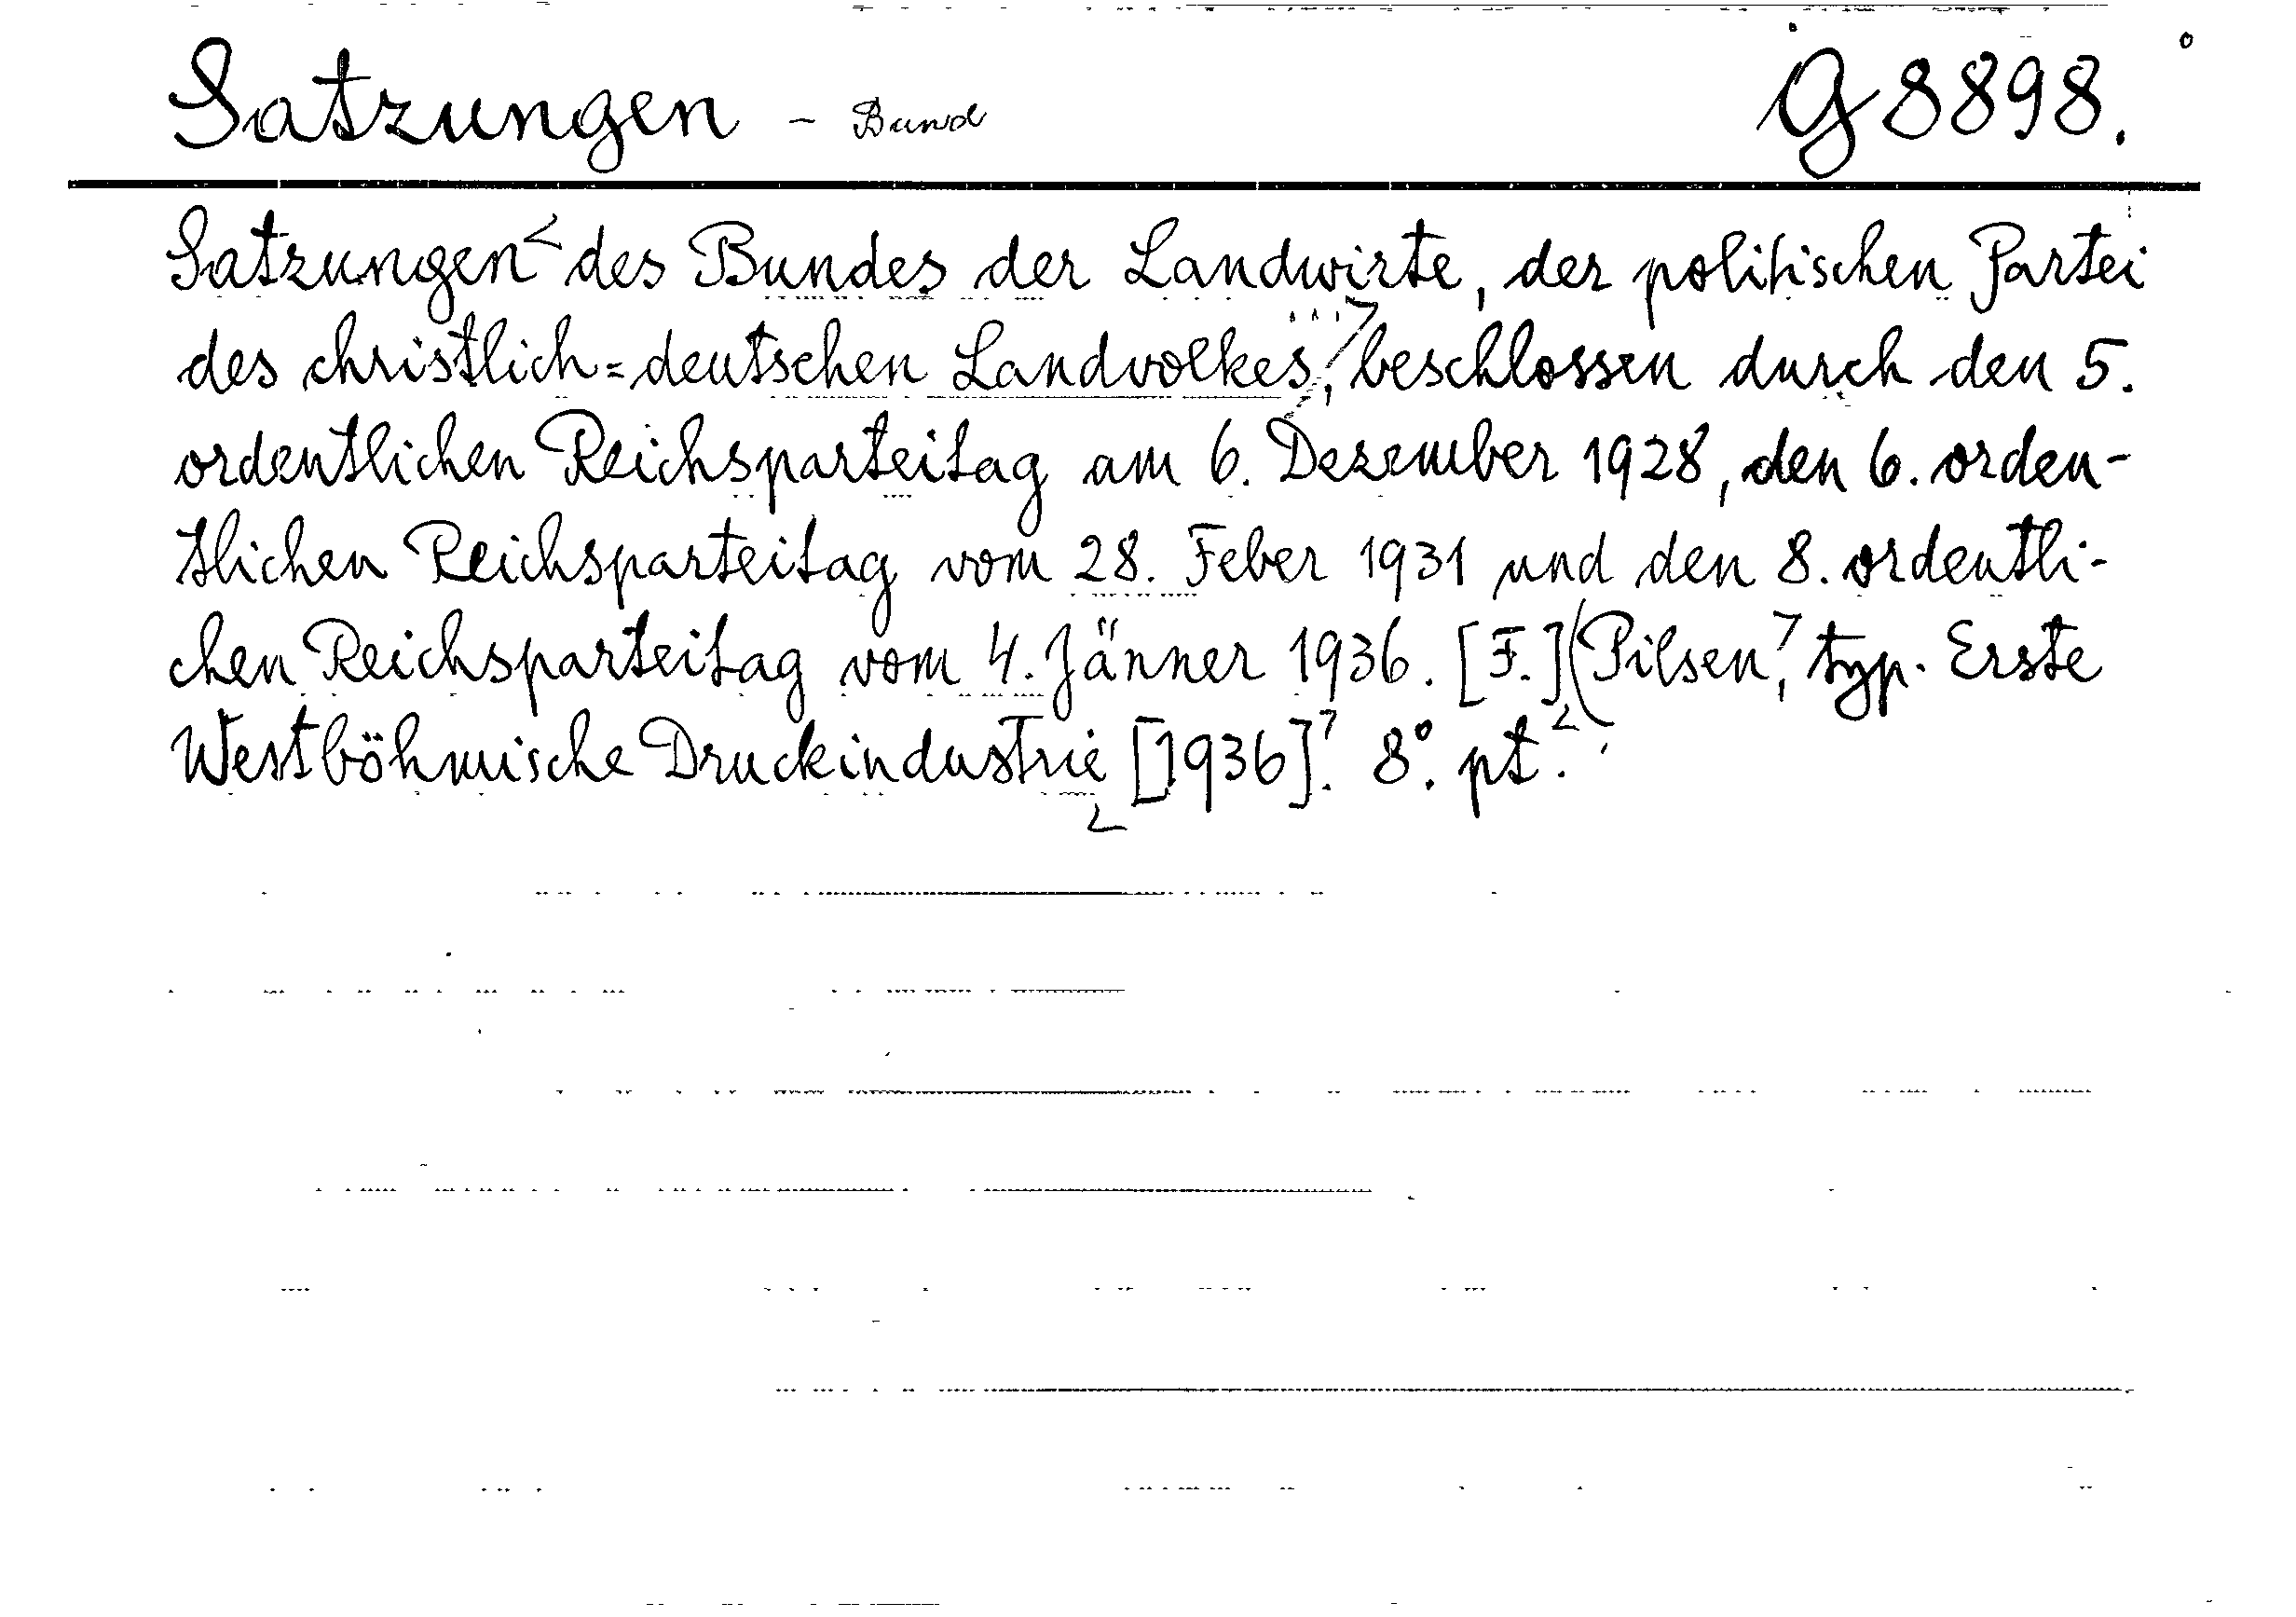 Satzungen - Bund g 8898.
Satzungen des Bundes der Landwirte, der politischen Partei
des christlich=deutschen Landvolkes, beschlossen durch den 5.
ordentlichen Reichsparteitag am 6. Dezember 1928, den 6. orden-
tlichen Reichsparteitag vom 28. Feber 1931 und den 8. ordentli-
chen Reichsparteitag vom 4. Jänner 1936. [F.] (Pilsen, typ. Erste
Westböhmische Druckindustrie [1936]. 8°. pt.